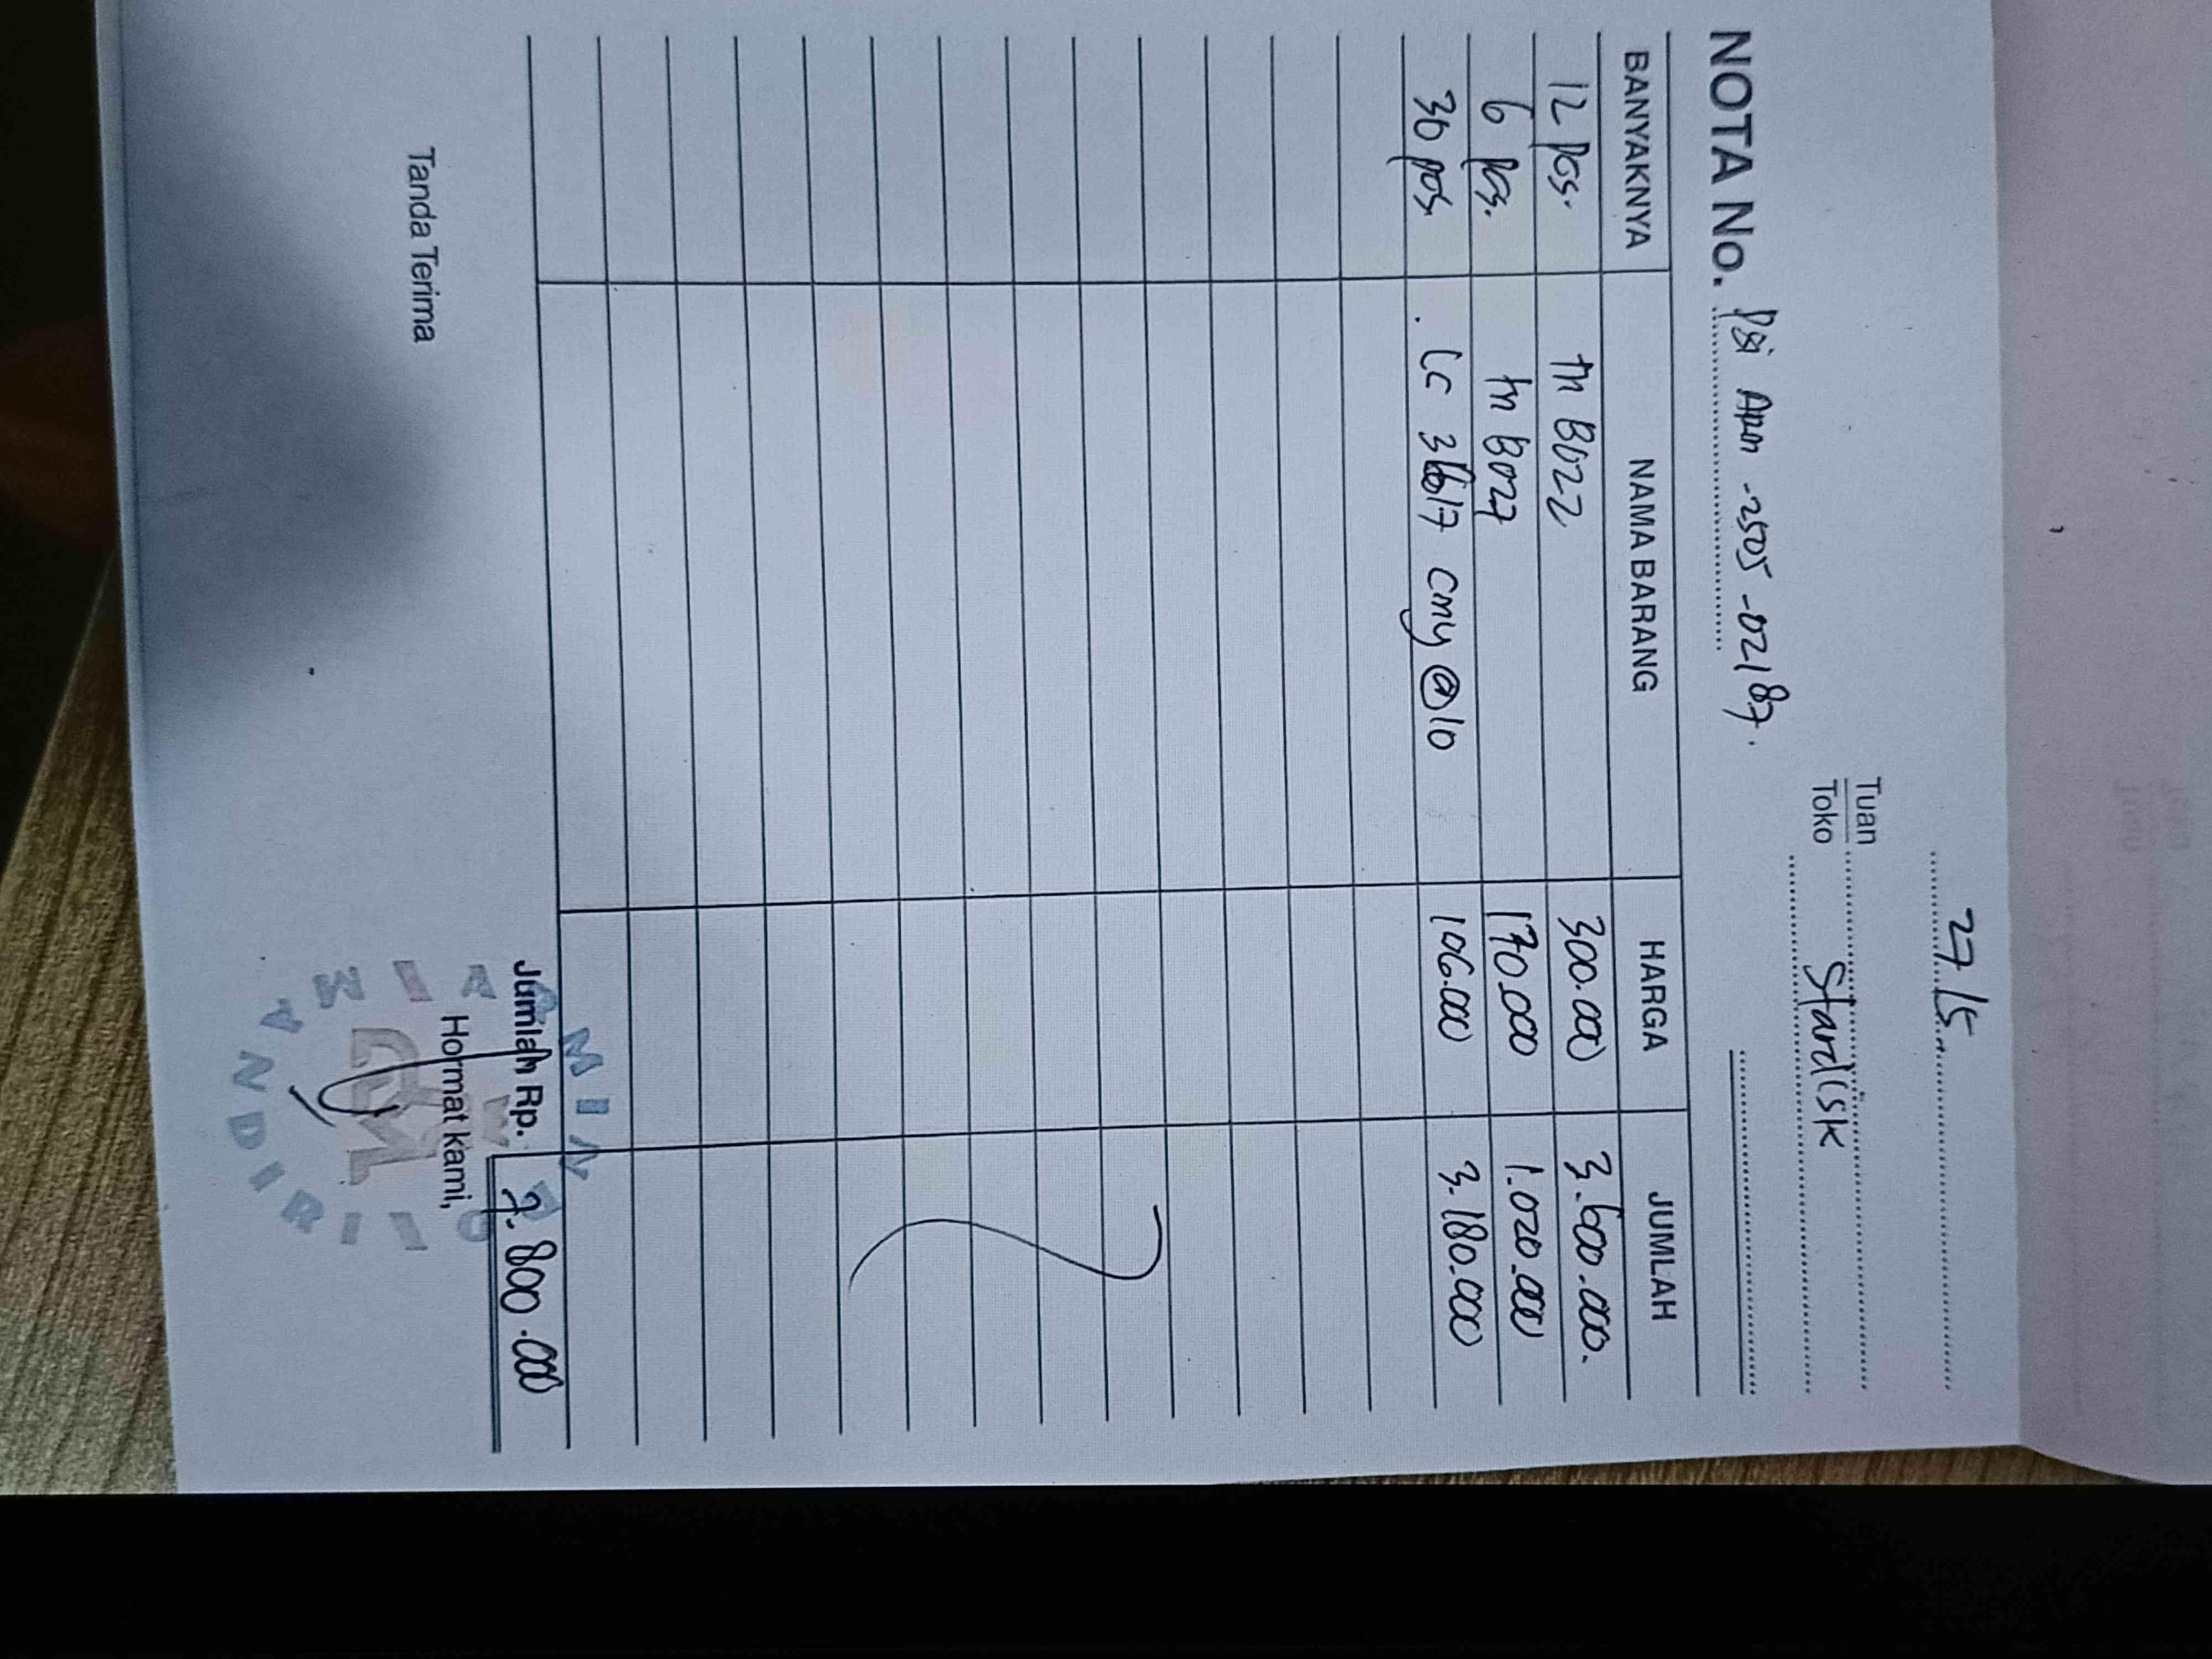 27/5
Tuan
Toko Stardisk
NOTA No. psi Apm -2505 -02187.
BANYAKNYA NAMA BARANG HARGA JUMLAH
12 pcs. tn B022 300.000 3.600.000.
6 pcs. tn B027 170.000 1.020.000
30 pcs. Lc 3617 cmy @10 106.000 3.180.000
Jumlah Rp. 7.800.000
Tanda Terima Hormat kami,
MANDIRI